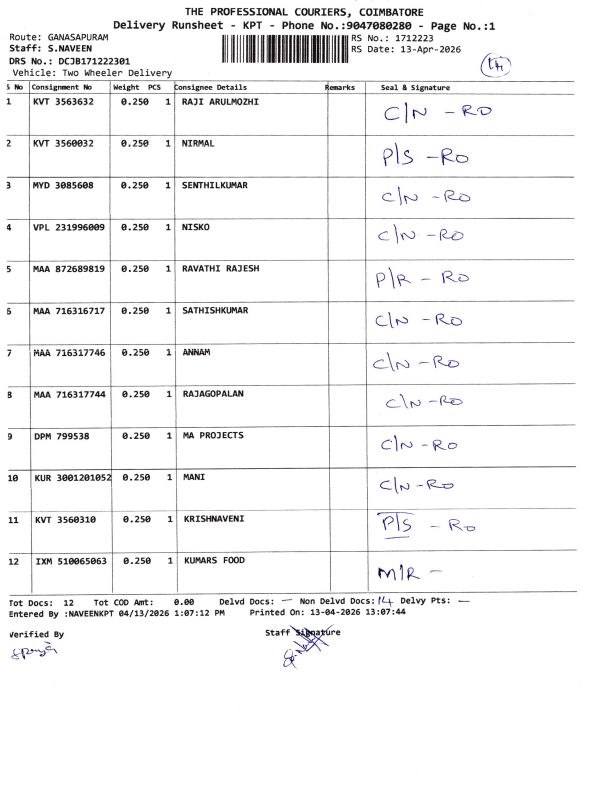 THE PROFESSIONAL COURIERS, COIMBATORE
Delivery Runsheet - KPT - Phone No.:9047080280 - Page No.:1
Route: GANASAPURAM RS No.: 1712223
Staff: S.NAVEEN RS Date: 13-Apr-2026
DRS No.: DCJB171222301
Vehicle: Two Wheeler Delivery
S No Consignment No Weight PCS Consignee Details Remarks Seal & Signature
1 KVT 3563632 0.250 1 RAJI ARULMOZHI C/N - RO
2 KVT 3560032 0.250 1 NIRMAL P/S - RO
3 MYD 3085608 0.250 1 SENTHILKUMAR C/N - RO
4 VPL 231996009 0.250 1 NISKO C/N - RO
5 MAA 872689819 0.250 1 RAVATHI RAJESH P/R - RO
6 MAA 716316717 0.250 1 SATHISHKUMAR C/N - RO
7 MAA 716317746 0.250 1 ANNAM C/N - RO
8 MAA 716317744 0.250 1 RAJAGOPALAN C/N - RO
9 DPM 799538 0.250 1 MA PROJECTS C/N - RO
10 KUR 3001201052 0.250 1 MANI C/N - RO
11 KVT 3560310 0.250 1 KRISHNAVENI P/S - RO
12 IXM 510065063 0.250 1 KUMARS FOOD M/R -
Tot Docs: 12 Tot COD Amt: 0.00 Delvd Docs: - Non Delvd Docs: 14 Delvy Pts: -
Entered By :NAVEENKPT 04/13/2026 1:07:12 PM Printed On: 13-04-2026 13:07:44
Verified By Staff Signature